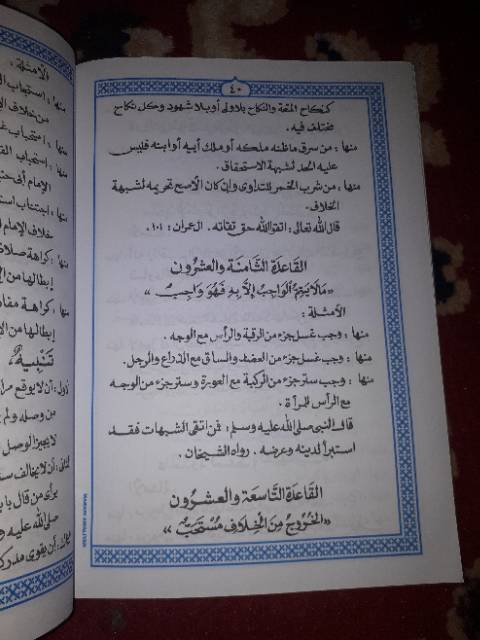 ٤٠
كنكاح المتعة والنكاح بلاولي أوبلاشهود وكل نكاح
مختلف فيه.
منها : من سرق ماظنه ملكه أوملك أبيه أوابنه فليس
عليه الحد لشبهة الاستحقاق.
منها : من شرب الخمر للتداوى وإن كان الأصح تحريمه لشبهة
الخلاف.
قال الله تعالى : اتقوالله حق تقاته . ال عمران : ١٠١.
القاعدة الثامنة والعشرون
«مَالَا يَتِمُّ الْوَاجِبُ إِلَّا بِهِ فَهُوَ وَاجِبٌ»
الأمثلة :
منها : وجب غسل جزء من الرقبة والرأس مع الوجه .
منها : وجب غسل جزء من العضد والساق مع الذراع والرجل.
منها : وجب سترجزء من الركبة مع العورة وسترجزء من الوجه
مع الرأس للمرأة .
قال النبي صلى الله عليه وسلم : فمن اتقى الشبهات فقد
استبرأ لدينه وعرضه . رواه الشيخان .
القاعدة التاسعة والعشرون
«الْخُرُوجُ مِنَ الْخِلَافِ مُسْتَحَبٌّ»
الأمثلة :
منها : استحباب
من خلاف
منها :
استحباب
الإمام أبى
منها : اجتناب
خلاف الإمام
منها : كراهة صلا
إبطالها من
منها : كراهة
إبطالها من
تَنْبِيهٌ
أن لايوقع
من وصله ولم
لايجيز الوصل
أن لايخالف
من قال
صلى الله عليه و
أن يقوى